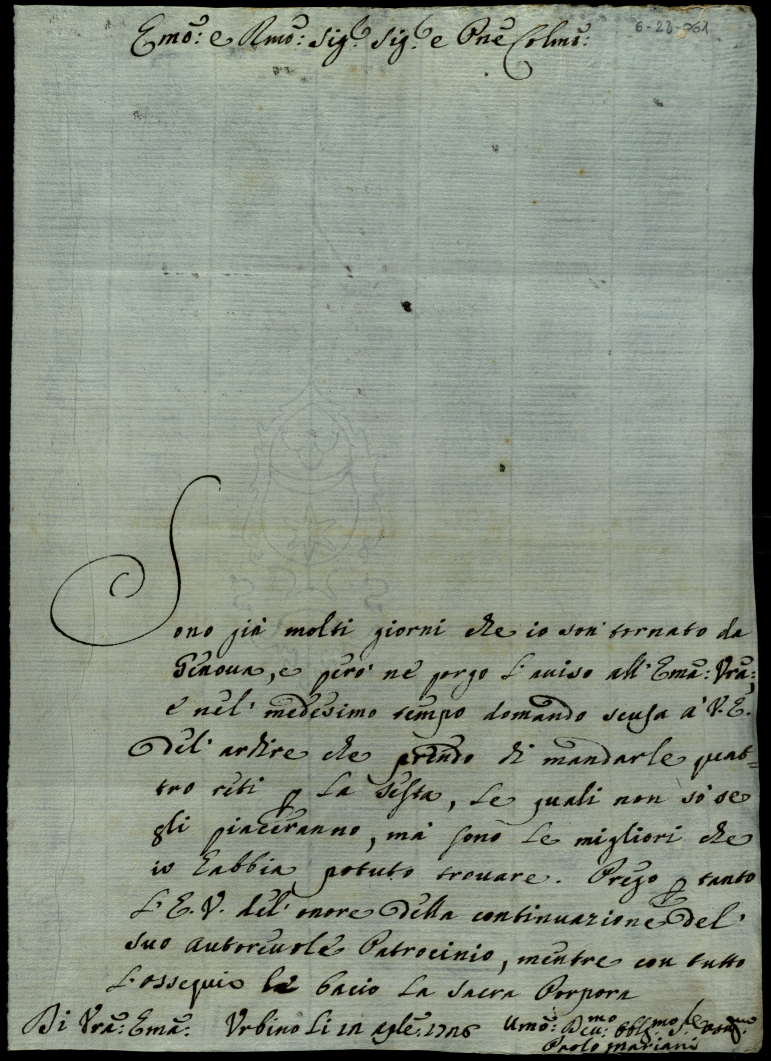 6-23-961
Emo: e Rmo: Sig.e Sig.e e Pne Colmo:
Sono già molti giorni che io son' tornato da
Genova, e però ne porgo l'auiso all'Ema: Vra;
e nel' medesimo tempo domando scusa a' V. E.
del' ardire che prendo di mandarle quat=
tro reti p la testa, le quali non sò se
gli piaceranno, mà sono le migliori che
io habbia potuto trouare. Prego p tanto
l'E. V. del' onore della continuazione del'
suo autoreuole Patrocinio, mentre con tutto
l'ossequio le bacio la Sacra Porpora
Di Vra: Ema: Urbino li
Umo: Dmo Obblmo
Paolo Mariani